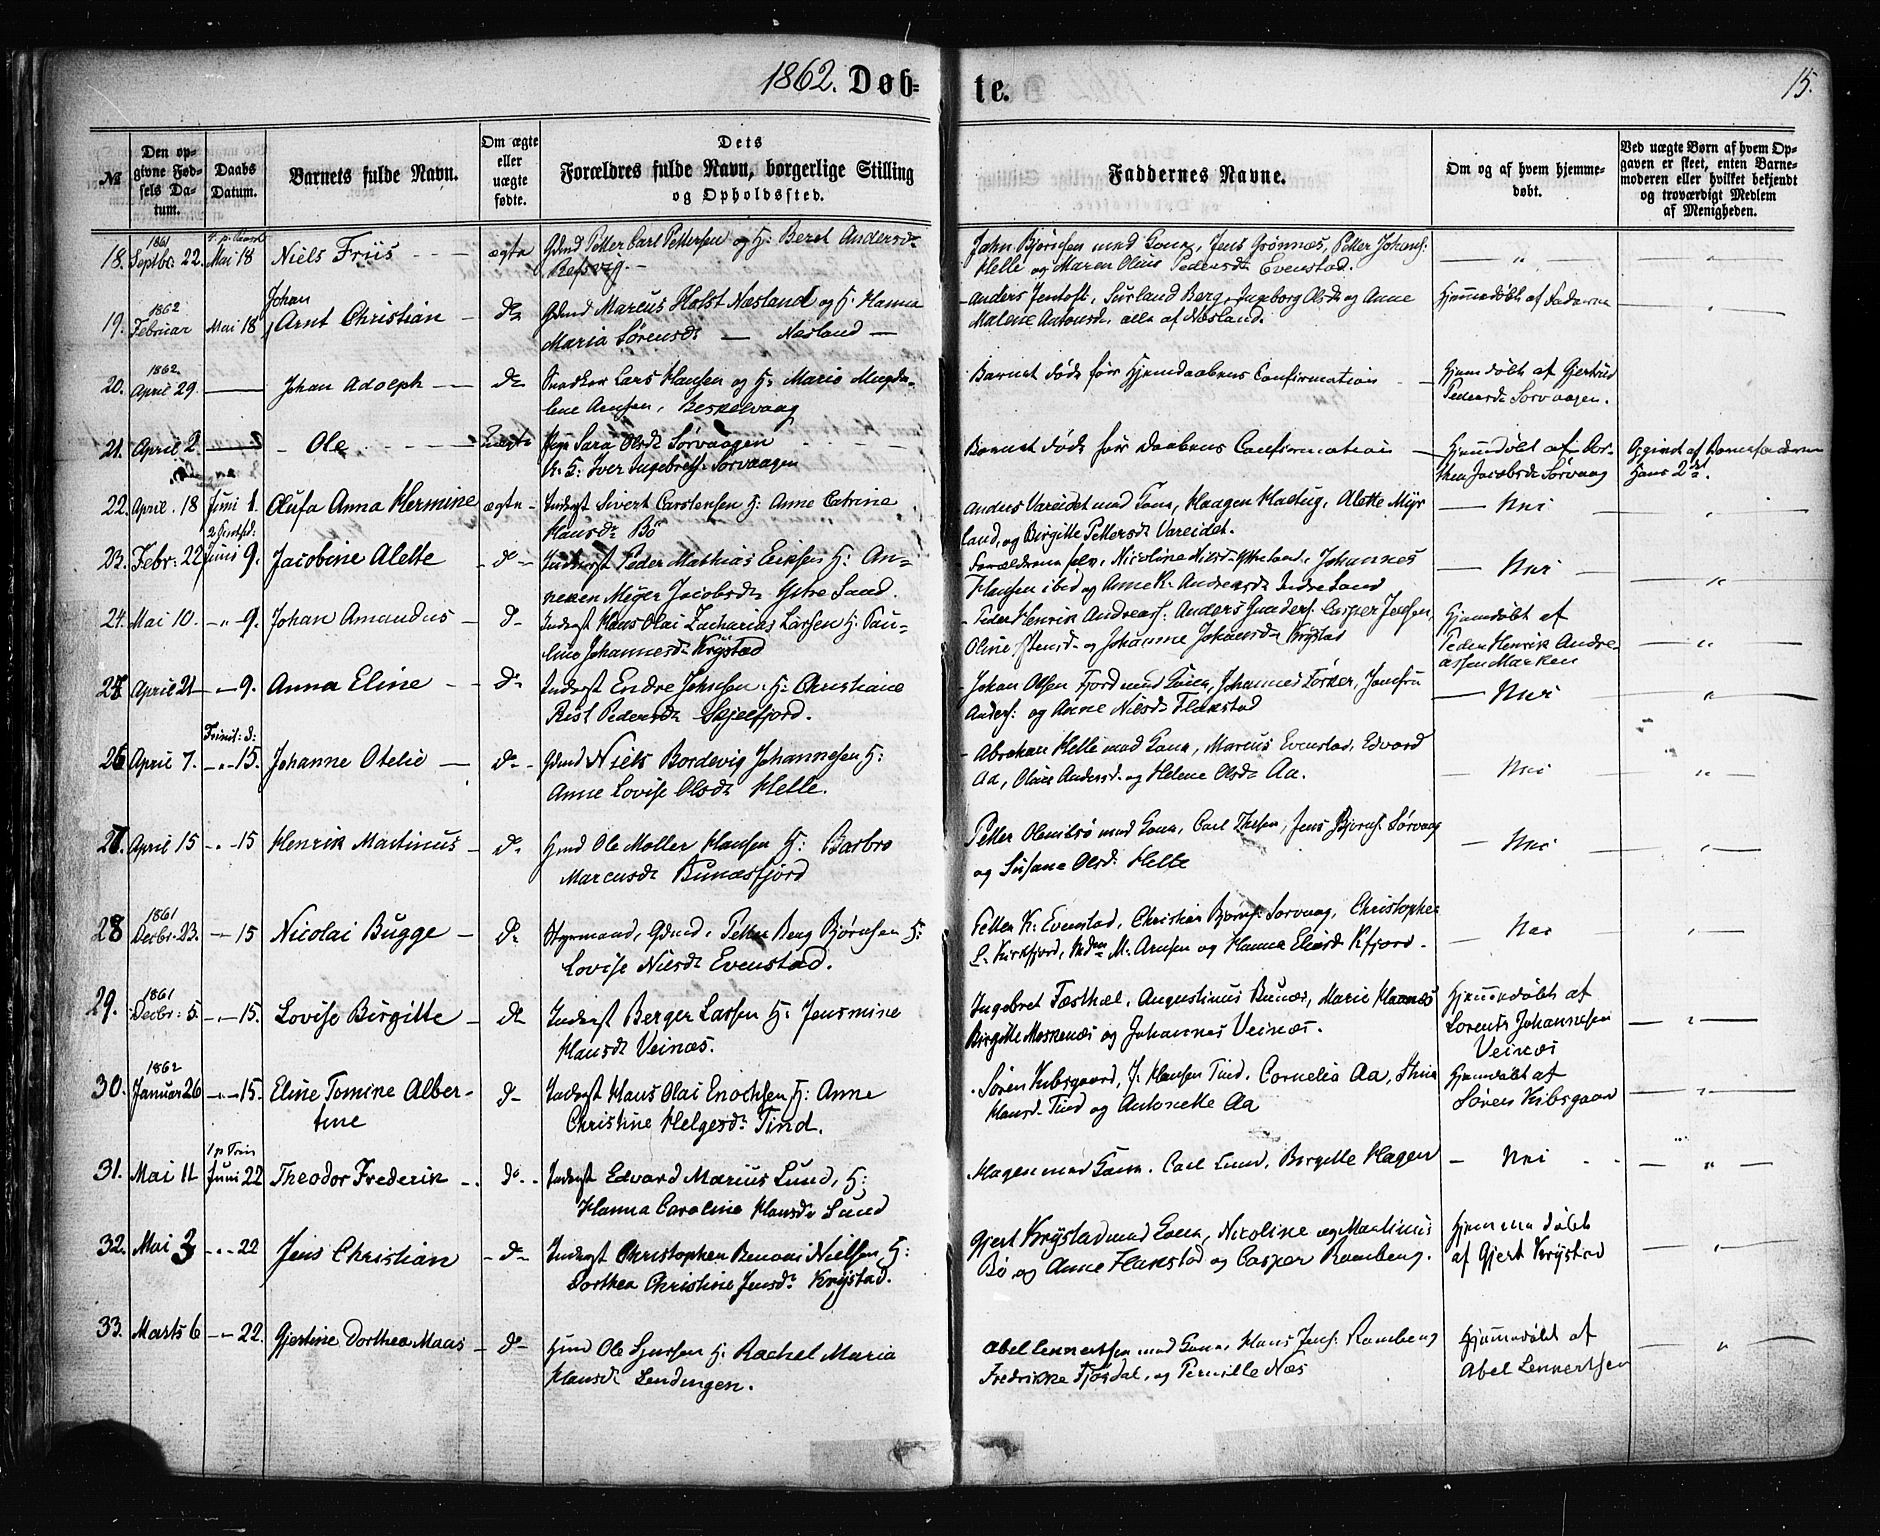 1862. Døb-
te. 15.
№ Den opgivne Fødsels Datum. Daabs Datum. Barnets fulde Navn. Om ægte eller uægte fødte. Dets Forældres fulde Navn, borgerlige Stilling og Opholdssted. Faddernes Navne. Om og af hvem hjemmedøbt. Ved uægte Børn af hvem Opgaven er skeet, enten Barnemoderen eller hvilket bekjendt og troværdigt Medlem af Menigheden.
18. 1861 Septbr: 22. Mai 18 Niels Friis - - - ægte Gdmd Petter Carl Pettersen og H: Beret Andersdr
Refsvig. -
John Bjørnsen med Kona, Jens Grønnæs, Petter Johans:
Helle og Maren Olius Pedersdr Evenstad. — " — "
19. 1862 Februar Mai 18 Johan
Arnt Christian - do Gdmd Marcus Holst Næsland og H: Hanna
Maria Sørensdr — Nesland —
Anders Jentoft, Surland Berg, Ingeborg Olsdr og Anne
Malene Antonsdr, alle af Næsland. Hjemmedøbt af Faderen "
20. 1862 April 29. — Johan Adolph - - do Snedker Lars Hansen og H: Marie Magda-
lene Arnsen,
Barnet døde før Hjemdaabens Confirmation - Hjemdøbt af Gjertrud
Pedersdr Sørvaagen.
21. April 2. — Ole - - - Uægte Pige Sara Olsdr Sørvaagen
U. K: Iver Ingebretss: Sørvaagen
Barnet døde før Daabens Confirmation Hjemmdøbt af Dor-
thea Jacobsdr Sørvaag Opgivet af Barnefaderen
Hans 2det.
22. April. 18 Juni 1. Olufa Anna Hermine ægte - Inderst Sivert Carstensen H: Anne Catrine
Hansdr Bø
Anders Vareidet med Kona, Haagen Hadug, Alette Myr
land, og Birgitte Pettersdr Vareidet. — Nei "
23. Febr: 22 Juni 9. Jacobine Alette - do - Inderst Peder Mathias Eriksen H: An-
neken Meyer Jacobsdr Ytre Sand.
Forældrene selv, Nicoline Nilsdr Yttresand, Johannes
Hansen ibid og Anne K. Andreasdr Indre Sand — Nei — "
24. Mai 10. - " 9. Johan Amandus - do - Inderst Hans Olai Zacharias Larsen H: Pau-
line Johannesdr Krystad
- Peder Henrik Andreass: Anders Gunders: Casper Jensen,
Oline Stensd - og Johanne Johansdr Krystad Hjemdøbt af
Peder Henrik Andre-
assen Marken — " —
25. April 21 - " 9. Anna Eline - - do Inderst Endre Johnsen, H: Christiane
Rist Pedersdr Skjelfjord.
- Johan Olsen Fjord med Kona, Johannes Forker, Jomfru
Anders: og Anne Nilsdr Flakstad — Nei — "
26. April 7. Trinit: S: - " - 15. Johanne Otelie — do - Gdmd Niels Bordevig Johannesen H:
Anne Lovise Olsdr Helle.
- Abraham Helle med Kona, Marcus Evenstad, Edvard
Aa, Olaus Andersd - og Helene Olsdr Aa. — Nei — "
27. April 15 - " - 15 Henrik Martinus - do Hmd Ole Møller Hansen H: Barbro
Marcusdr Bunæsfjord
Petter Olenilsø med Kona, Carl Thesen, Jens Bjørns: Sørvaag
og Susane Olsdr: Helle — Nei — "
28 1861 Decbr: 23. - " - 15 Nicolai Bugge - do Styrmand, Gdmd, Petter Berg Bjørnsen H:
Lovise Nilsdr Evenstad.
Petter K: Evenstad, Christian Bjørns: Sørvaag, Christopher
L. Kirkfjord, Mdm M. Arnsen og Hanna Eliasdr Kfjord. — Nei — "
29. 1861 Decbr: 5. - " - 15. Lovise Birgitte - do Inderst Berger Larsen H: Jensmine
Hansdr Veinæs.
Ingebret Fæsthæl, Augustinus Bunæs, Marie Hamnæs
Birgitte Moskenæs og Johannes Veinæs. Hjemmedøbt af
Lorents Johannesen
Veinæs — " —
30. 1862 Januar 26 - " - 15. Eline Tomine Alber-
tine do - Inderst Hans Olai Enochsen H: Anne
Christine Helgesdr Tind.
Søren Kibsgaard, J. Hansen Tind, Cornelia Aa, Stina
Hansd - Tind og Antonette Aa Hjemdøbt af
Søren Kibsgaard — " —
31. Mai 11 1 p Trin Juni 22 Theodor Frederik - . do - Inderst Edvard Marius Lund, H:
Hanna Caroline Hansdr Lund
Hagen med Kona, Carl Lund, Birgitte Hagen — Nei - - — " —
32. Mai 3 - " - 22 Jens Christian - do - Inderst Christopher Benoni Nielsen H:
Dorthea Christine Jensdr Krystad.
Gjert Krystad med Kona, Nicoline og Martinus
Bø og Anne Flakstad og Caspar Ramberg. Hjemmedøbt
af Gjert Krystad — " —
33. Marts 6 - " - 22. Gjertine Dorthea Maas - do - Hmd Ole Sjursen H: Rachel Maria
Hansdr Lendingen.
Abel Lennertsen med Kona, Hans Jens: Ramberg
Fredrikke Fjøsdal, og Pernille Næs Hjemmedøbt af
Abel Lennertsen — " —